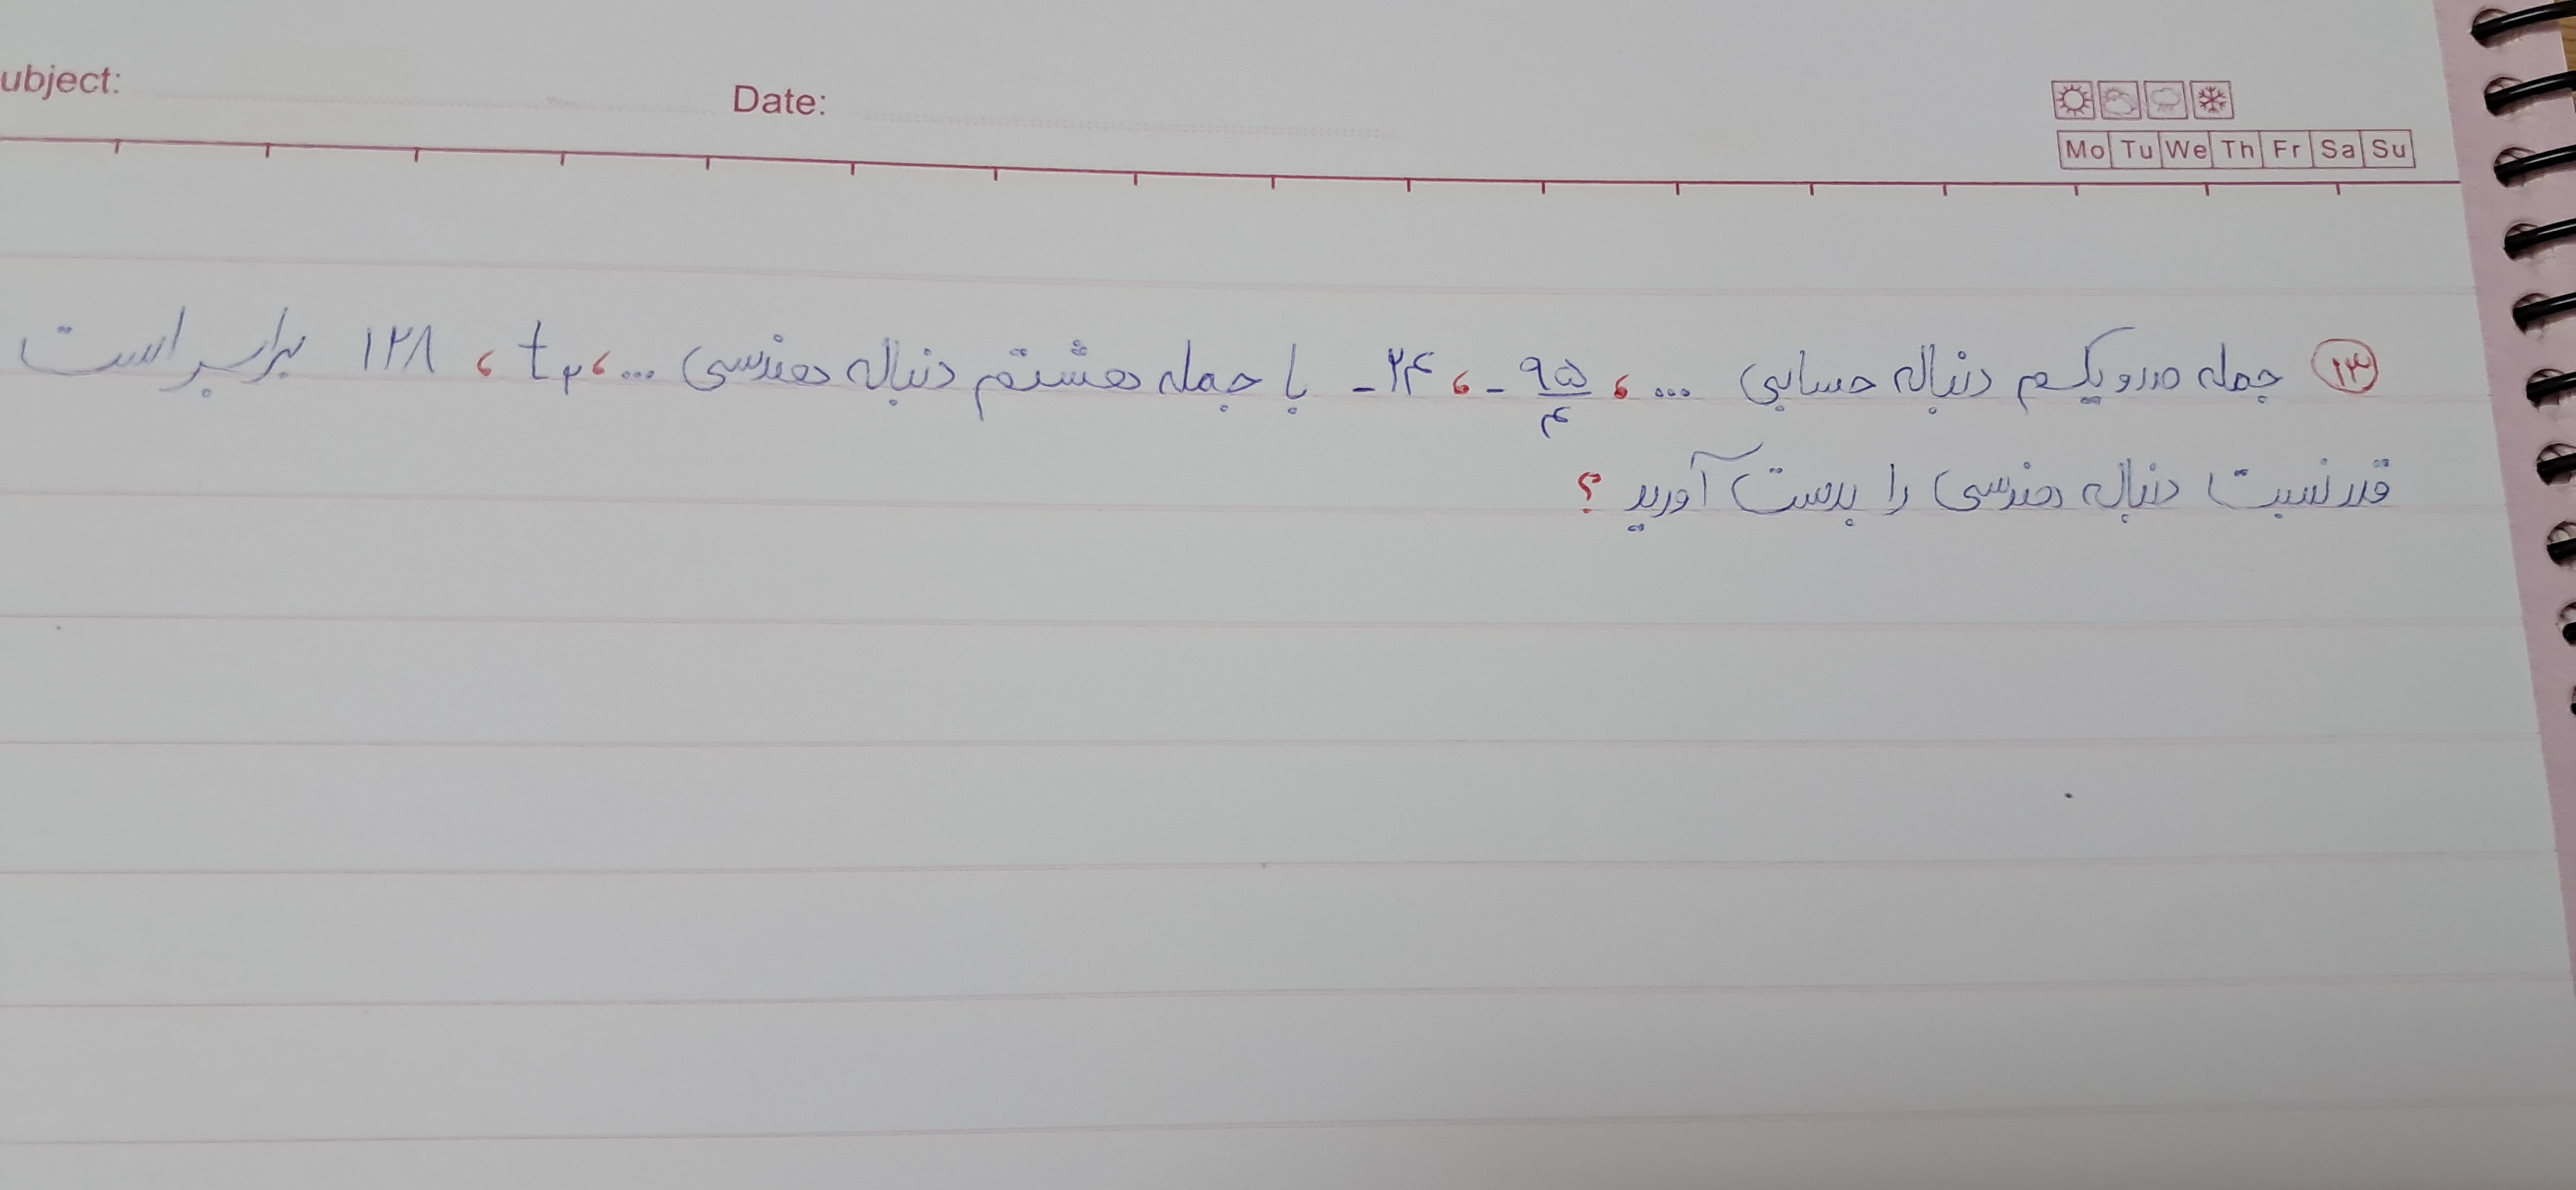 ubject:
Date:
Mo Tu We Th Fr Sa Su
۱۳ جمله صدو یکم دنباله حسابی ... ، -۹۵/۴ ، -۲۴ با جمله هشتم دنباله هندسی ... ، t۲ ، ۱۲۸ برابر است
قدر نسبت دنباله هندسی را بدست آورید ؟